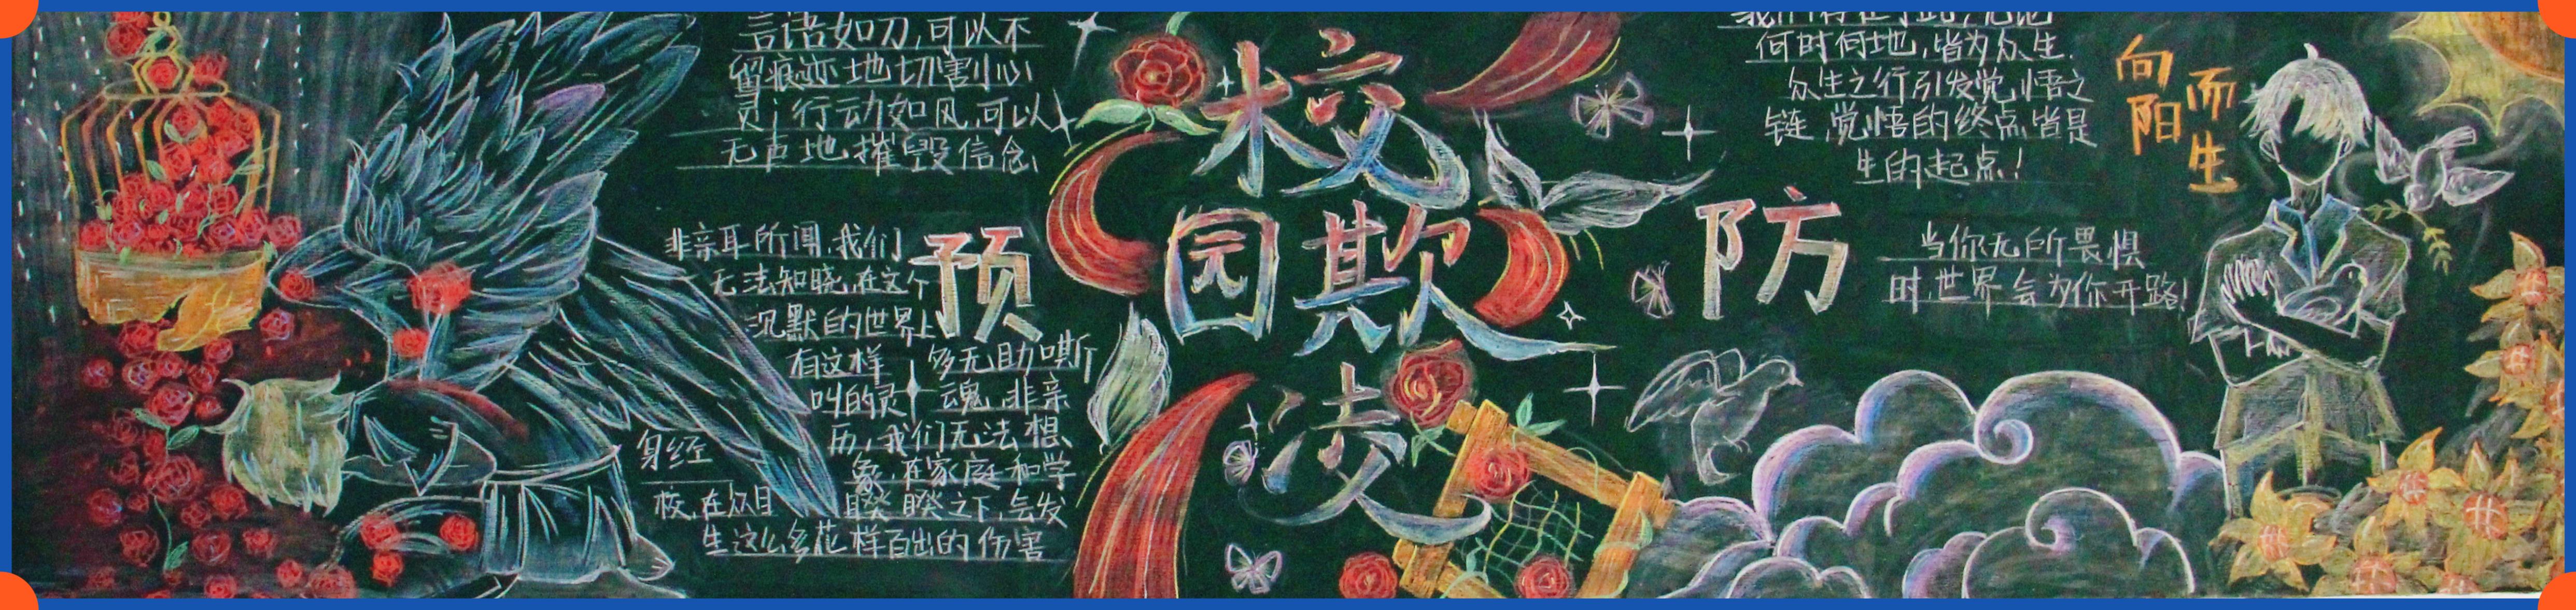 言语如刀,可以不
留痕迹地切割心
灵;行动如风,可以
无声地摧毁信念
非亲耳所闻,我们
无法知晓,在这个
沉默的世界上
有这样 多无助嘶
叫的灵 魂,非亲
身经 历,我们无法想
象,在家庭和学
校,在众目 睽睽之下,会发
生这么多花样百出的伤害
预
校
园欺
凌
防
何时何地,皆为众生.
众生之行引发觉悟之
链,觉悟的终点,皆是
生的起点!
向阳
而生
当你无所畏惧
时,世界会为你开路!